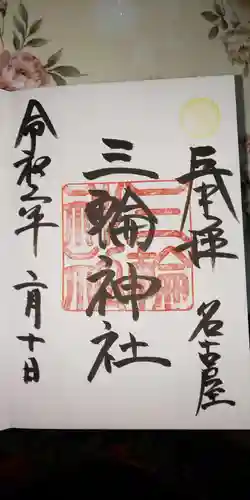 奉拝
名古屋
三輪神社
令和六年
二月十日